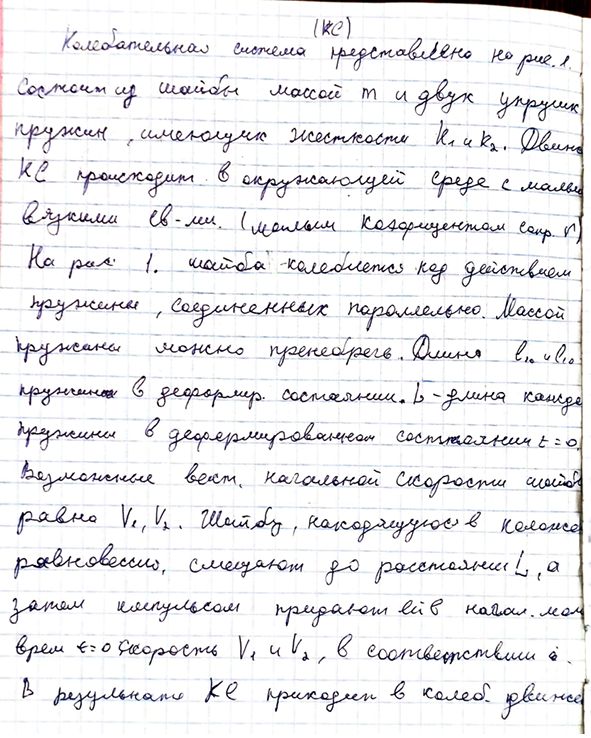 (КС)
Колебательная система представлена на рис. 1.
Состоит из шайбы массой m и двух упругих
пружин, имеющих жесткости k₁ и k₂. Движ
КС происходит в окружающей среде с малы
вязкими св-ми. (малым коэфициентом сопр. r)
На рис 1. шайба колеблется под действием
пружины, соединенных параллельно. Массой
пружины можно пренебречь. Длина l₁₀ и l₂₀
пружина в деформир. состоянии. L - длина кажде
пружины в деформированном состоянии t=0.
Возможные вект. начальной скорости шайб
равна V₁, V₂. Шайбу, находящуюся в положе
равновесию, смещают до расстояния L, а
затем импульсом придают ей в начал. мом
врем t=0 скорость V₁ и V₂, в соответствии
В результате КС приходит в колеб. движе